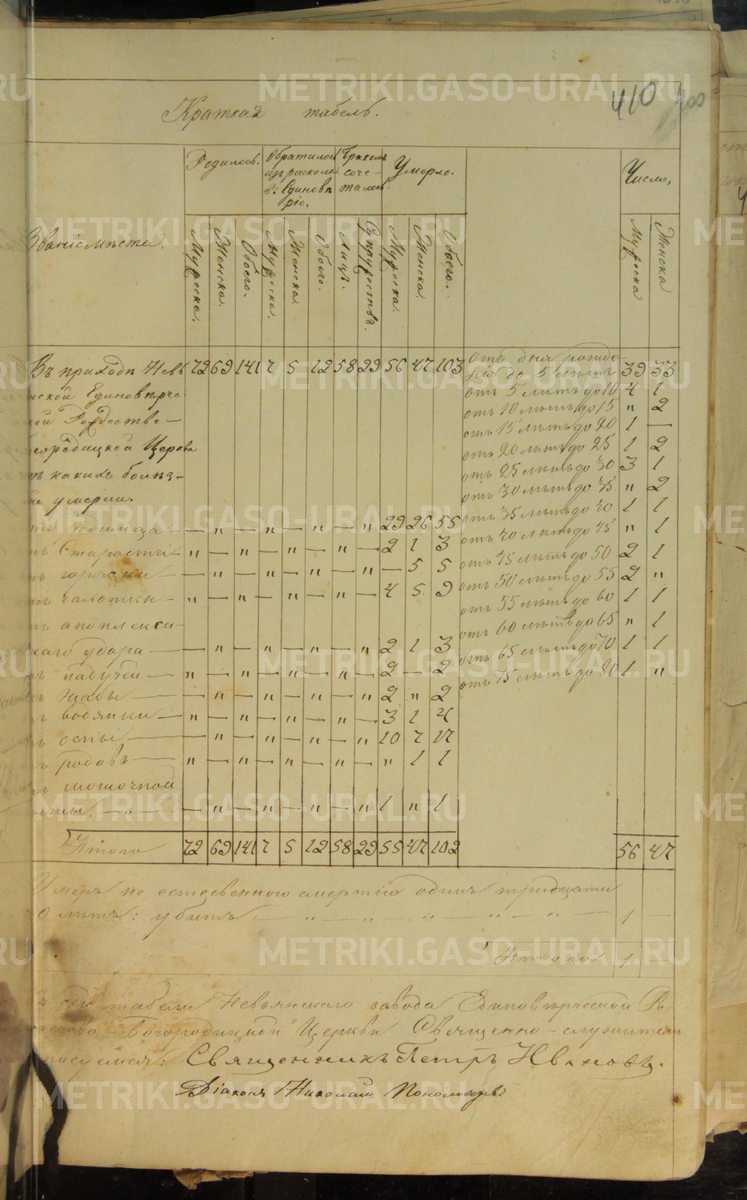 410
Краткая табель.
Родилось. Обратилось изъ раскола въ Единовѣріе. Бракомъ сочеталось Умерло. Число.
Званіе мѣста. Мужеска. Женска. Обоего. Мужеска. Женска. Обоего. Лицъ. Супружествъ. Мужеска. Женска. Обоего. Мужеска Женска
Въ приходѣ Невь 72 69 141 7 5 12 58 29 56 47 103 отъ дня рожде 39 33
нія до 5 лѣтъ
нской Единовѣрче отъ 5 лѣтъ до 10 4 1
ской Рождество отъ 10 лѣтъ до 15 „ 2
отъ 15 лѣтъ до 20 1 —
Богородицкой Церкви отъ 20 лѣтъ до 25 1 2
какихъ болѣз- отъ 25 лѣтъ до 30 3 1
ней умерли: отъ 30 лѣтъ до 35 „ 2
— „ — „ — „ — „ 29 26 55 отъ 35 лѣтъ до 40 1 1
Старости „ — „ — „ — „ — 2 1 3 отъ 40 лѣтъ до 45 „ 1
горячки — „ — „ — „ — „ — 5 5 отъ 45 лѣтъ до 50 2 1
чахотки „ — „ — „ — „ — 4 5 9 отъ 50 лѣтъ до 55 2 „
отъ 55 лѣтъ до 60 1 1
апоплекси- отъ 60 лѣтъ до 65 „ 1
ческаго удара — „ — „ — „ — „ 2 1 3 отъ 65 лѣтъ до 70 1 1
падучей „ — „ — „ — „ — 2 — 2 отъ 75 лѣтъ до 80 1 „
жабы — „ — „ — „ — „ 2 „ 2
водянки „ — „ — „ — „ — 3 1 4
оспы — „ — „ — „ — „ 10 7 17
родовъ „ — „ — „ — „ — „ 1 1
— „ — „ — „ — „ 1 „ 1
Итого 72 69 141 7 5 12 58 29 55 47 102 56 47
Умеръ не естественного смертію одинъ тридцати
лѣтъ: убитъ — „ — „ — „ — „ — „ — 1 —
Итого 1 —
сей табели Невьянскаго завода Единовѣрческой Ро-
Богородицкой Церкви Священно-служители
подписуемся: Священникъ Петръ Ивановъ.
Діаконъ Николай Пономаревъ
METRIKI.GASO-URAL.RU